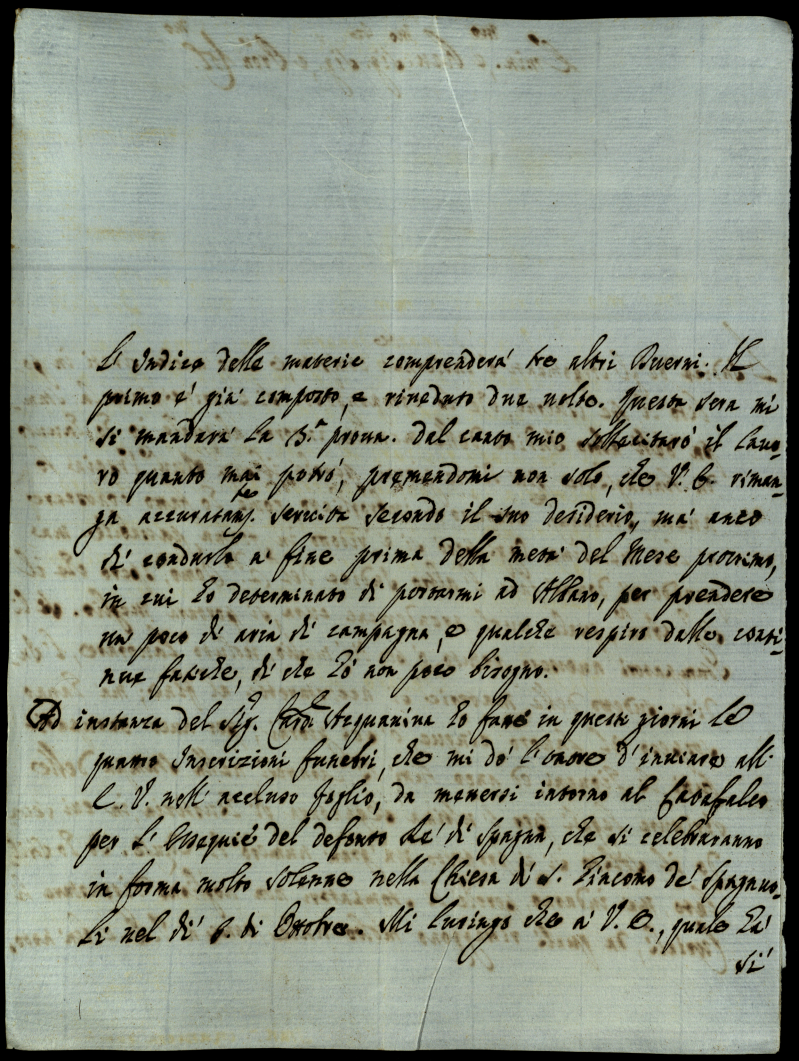 L'Indice delle materie comprenderà tre altri Duerni. Il
primo è già composto, e riveduto due volte. Questa sera mi
si mandarà la 3.ª prova. Dal canto mio sollecitarò il lavo-
ro quanto mai potrò, premendomi non solo, che V. E. riman-
ga accuratam.te servita secondo il suo desiderio, mà anco
di condurlo à fine prima della metà del Mese prossimo,
in cui hò determinato di portarmi ad Albano, per prendere
un poco di aria di campagna, e qualche respiro dalle conti-
nue fatiche, di che hò non poco bisogno.
Ad instanza del Sig.r Card.l Acquaviva hò fatte in questi giorni le
quattro Inscrizioni funebri, che mi dò l'onore d'inviare all'
E. V. nell'accluso foglio, da mettersi intorno al Catafalco
per l'Esequie del defonto Rè di Spagna, che si celebraranno
in forma molto solenne nella Chiesa di S. Giacomo de' Spagnuo-
li nel dì 6. di Ottobre. Mi lusingo che à V. E., quale hà
sì